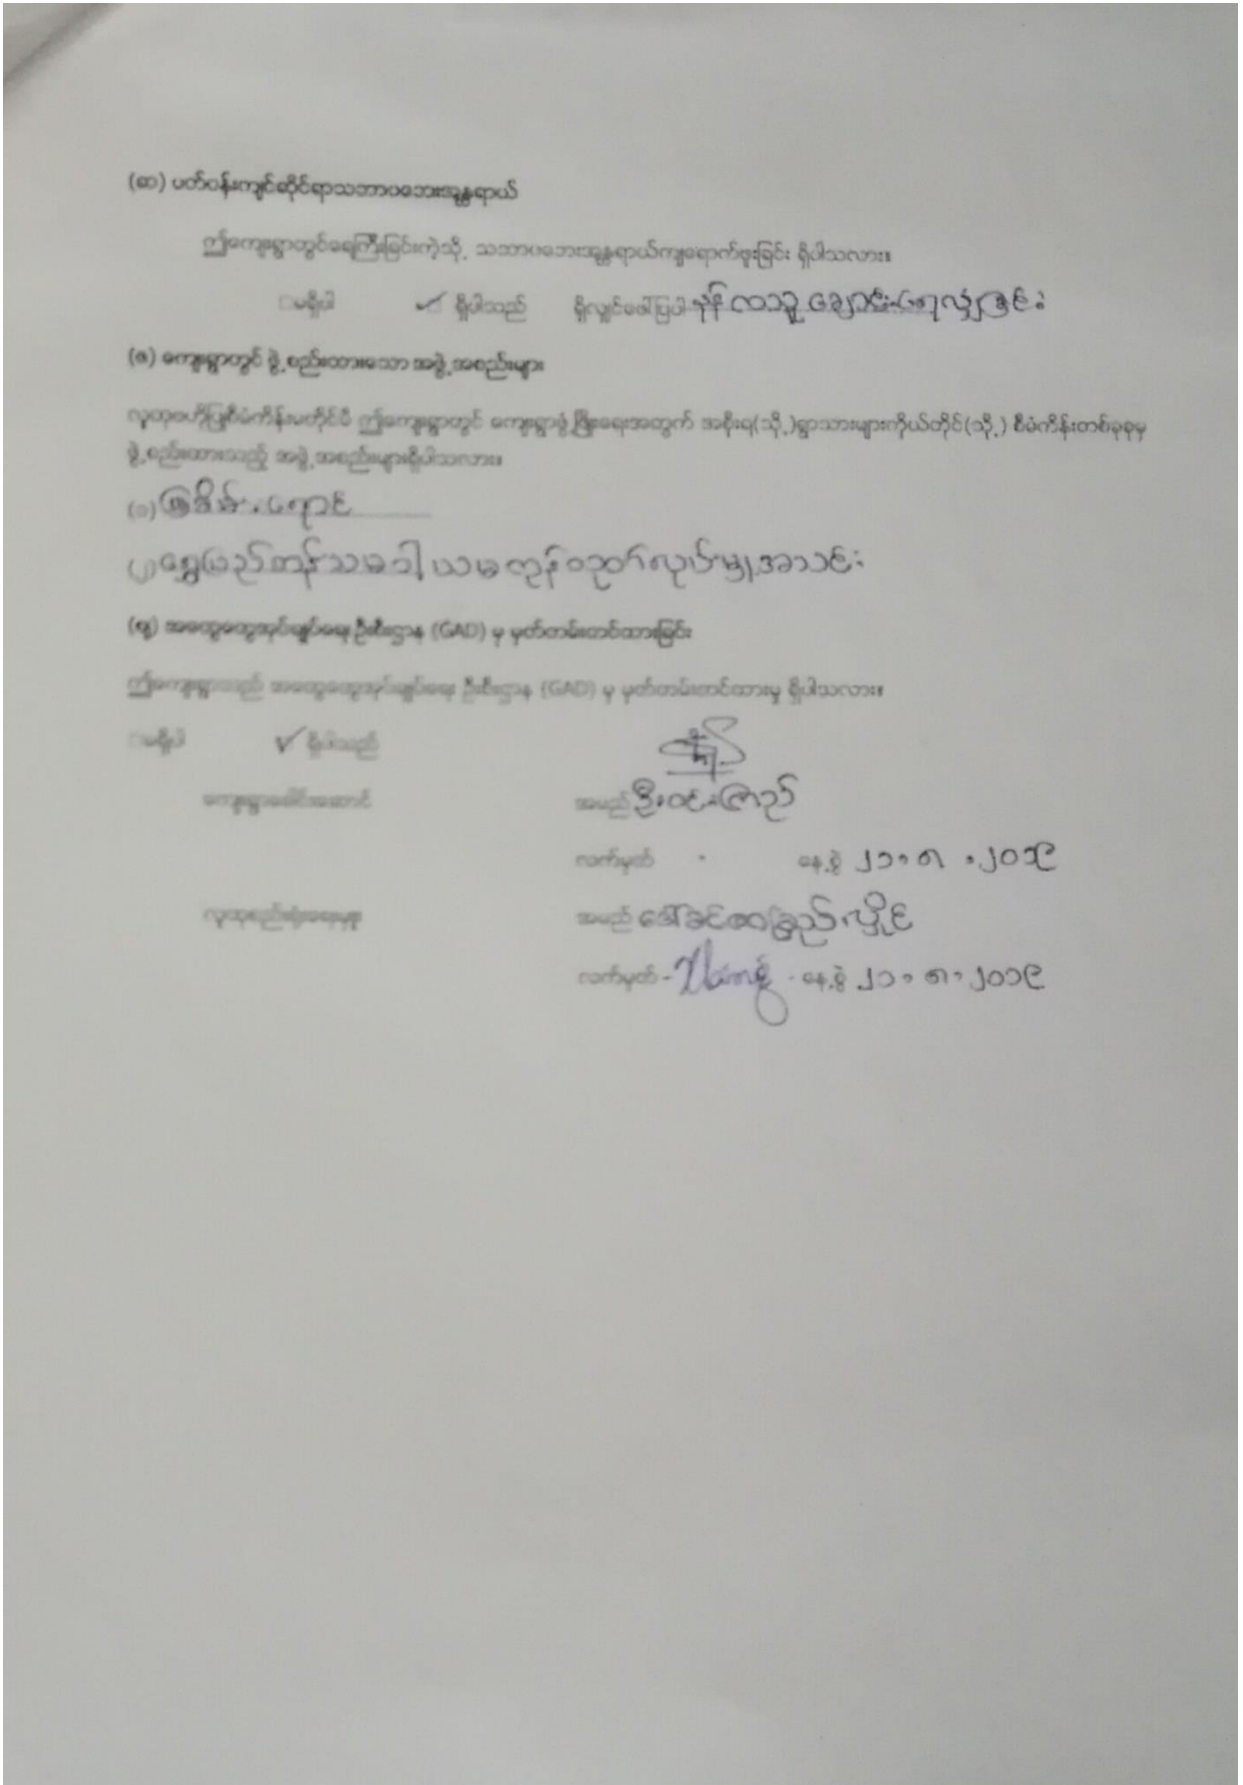 (ဆ) ပတ်ဝန်းကျင်ဆိုင်ရာသဘာဝဘေးအန္တရာယ်
ဤကျေးရွာတွင်ရေကြီးခြင်းကဲ့သို့ သဘာဝဘေးအန္တရာယ်ကျရောက်ဖူးခြင်း ရှိပါသလား။
မရှိပါ ✓ ရှိပါသည် ရှိလျှင်ဖေါ်ပြပါ ချောင်းရေလျှံခြင်း
(ဇ) ကျေးရွာတွင် ဖွဲ့စည်းထားသော အဖွဲ့အစည်းများ
လူထုဗဟိုပြုစီမံကိန်းမတိုင်မီ ဤကျေးရွာတွင် ကျေးရွာဖွံ့ဖြိုးရေးအတွက် အစိုးရ(သို့)ရွာသားများကိုယ်တိုင်(သို့) စီမံကိန်းတစ်ခုခုမှ
ဖွဲ့စည်းထားသည့် အဖွဲ့အစည်းများရှိပါသလား။
(၁) မြစိမ်းရောင်
(၂) ရွှေပြည်တန်သမဝါယမကုန်ထုတ်လုပ်မှုအသင်း
(ဈ) အထွေထွေအုပ်ချုပ်ရေးဦးစီးဌာန (GAD) မှ မှတ်တမ်းတင်ထားခြင်း
ဤကျေးရွာသည် အထွေထွေအုပ်ချုပ်ရေး ဦးစီးဌာန (GAD) မှ မှတ်တမ်းတင်ထားမှု ရှိပါသလား။
မရှိပါ ✓ ရှိပါသည်
ကျေးရွာခေါင်းဆောင် အမည် ဦးဝင်းကြည်
လက်မှတ် နေ့စွဲ ၂၁.၈.၂၀၁၉
လူထုစည်းရုံးရေးမှူး အမည် ဒေါ်ခင်
လက်မှတ် - နေ့စွဲ ၂၁.၈.၂၀၁၉